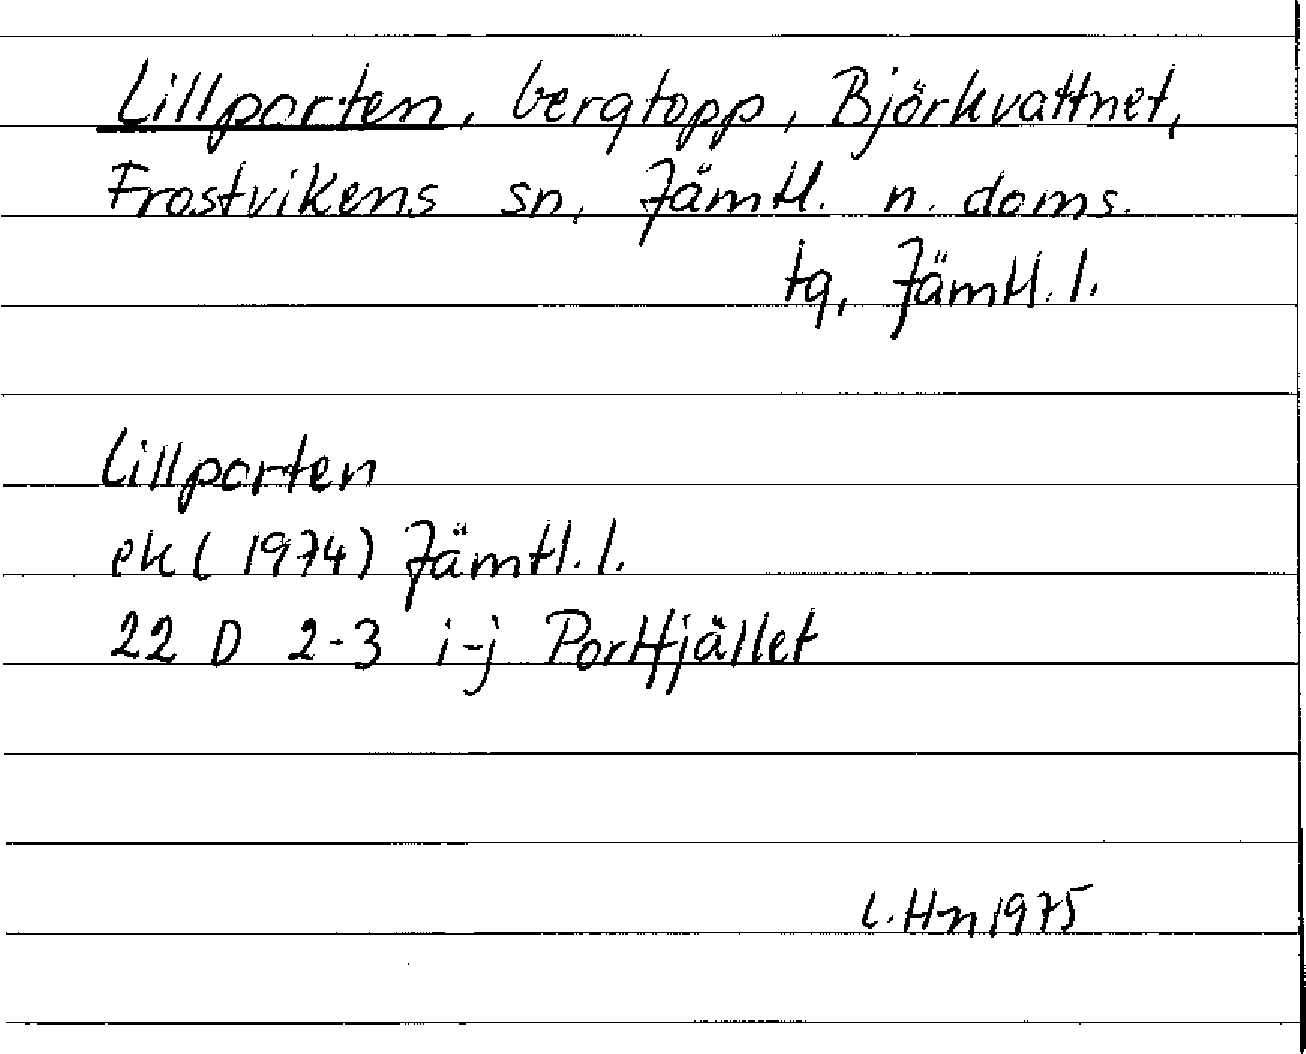 Lillporten, bergtopp, Björkvattnet,
Frostvikens sn, Jämtl. n. doms.
tg, Jämtl. l.
Lillporten
ek (1974) Jämtl. l.
22 D 2-3 i-j Portfjället
L. Hn 1975